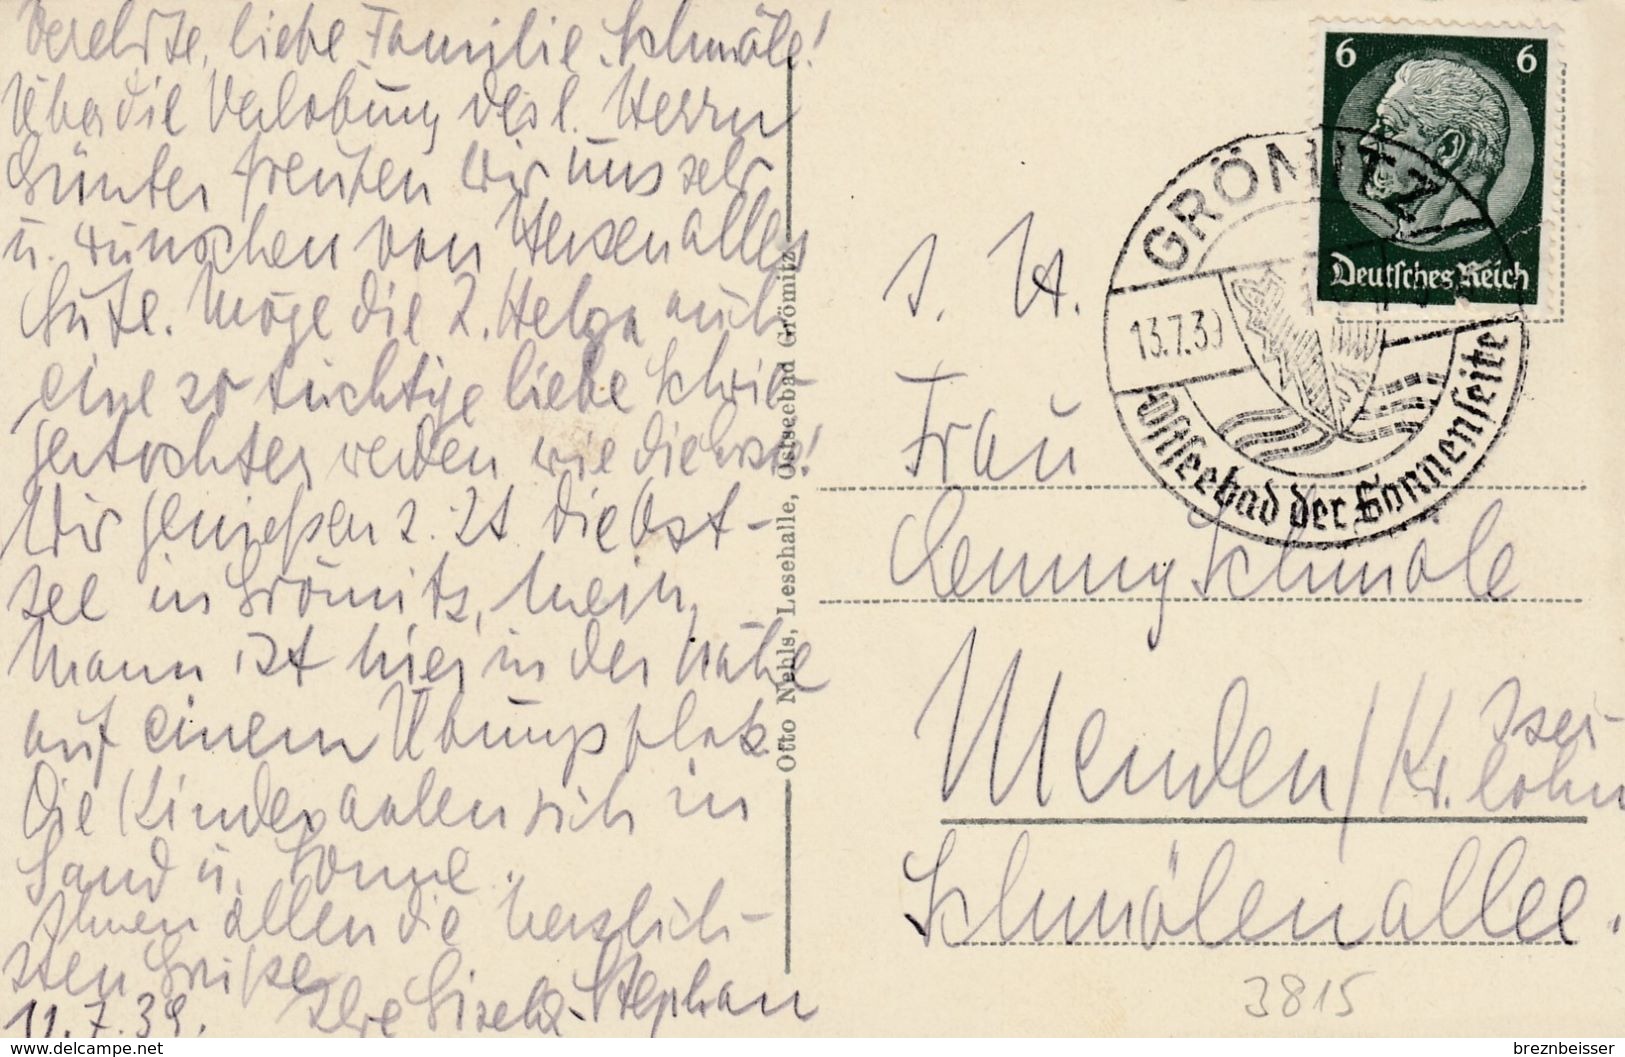 Verehrte, liebe Familie Schmöle!
Über die Verlobung des l. Herrn
Günter freuten wir uns sehr
u. wünschen von Herzen alles
Gute. Möge die 2. Helga auch
eine so tüchtige liebe Schwie-
gertochter werden wie die erste!
Wir genießen z. Zt. die Ost-
see in Grömitz, mein
Mann ist hier in der Nähe
auf einem Übungsplatz
Die Kinder aalen sich in
Sand u. Sonne.
Ihnen allen die herzlich-
sten Grüße
11.7.39. Ihre Gisela Stephan
Otto Nehls, Lesehalle, Ostseebad Grömitz
6 6
Deutsches Reich
GRÖMITZ
13.7.39
Ostseebad der Sonnenseite
I. H.
Frau
Schmöle
Menden / Kr. Iser-
lohn
Schmölenallee.
3815
www.delcampe.net
breznbeisser